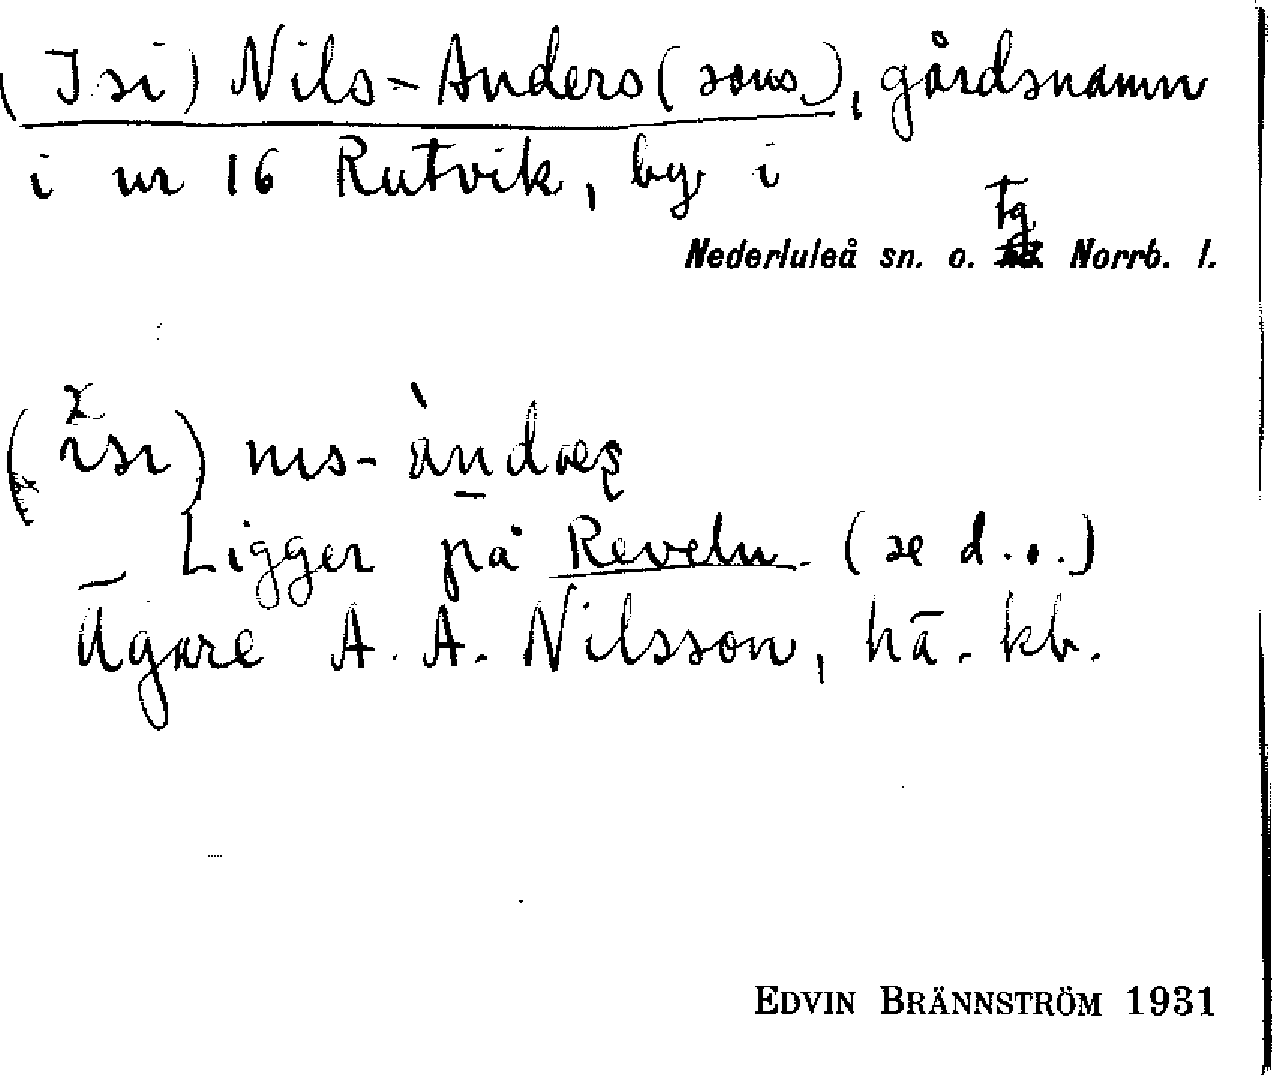 (Isi) Nils-Anders(sons), gårdsnamn
i nr 16 Rutvik, by i
Nederluleå sn. o. tg Norrb. l.
Ligger på Reveln. (se d.o.)
Ägare A. A. Nilsson, hä. kb.
EDVIN BRÄNNSTRÖM 1931